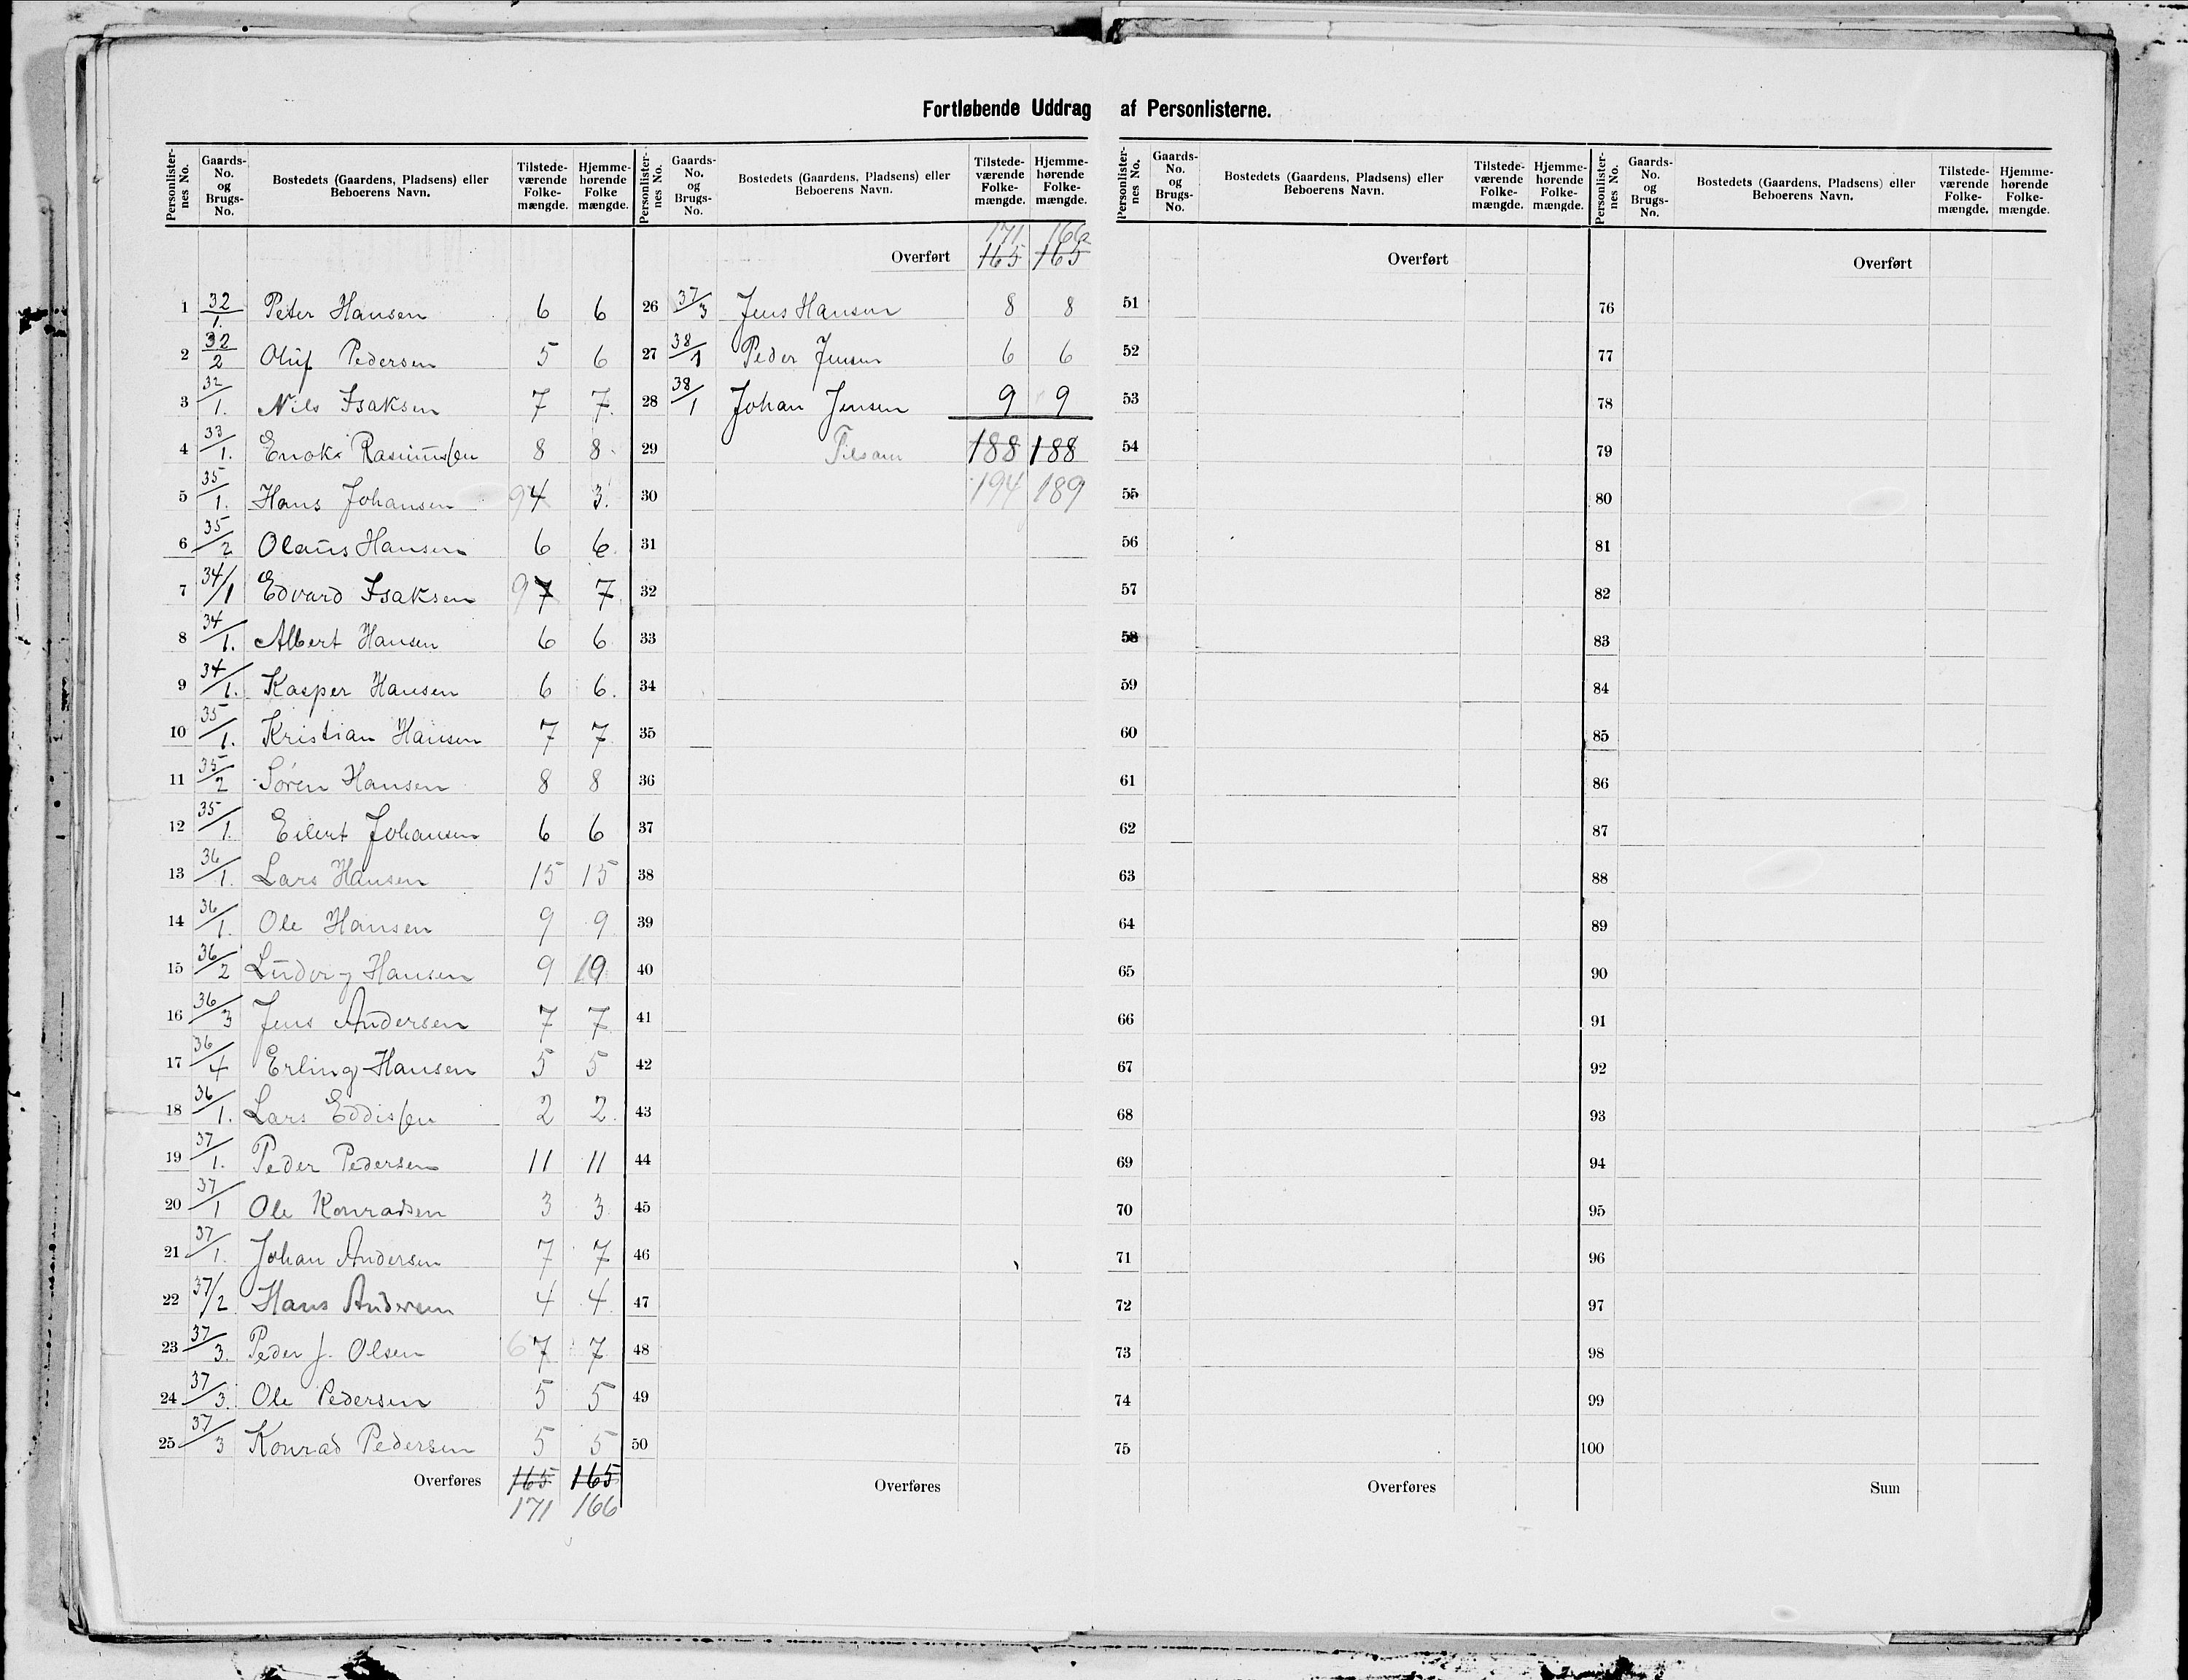 Fortløbende Uddrag af Personlisterne.
Personlister-nes No. Gaards-No. og Brugs-No. Bostedets (Gaardens, Pladsens) eller Beboerens Navn. Tilstede-værende Folke-mængde. Hjemme-hørende Folke mængde.
1 32/1. Peter Hansen 6 6
2 32/2 Oluf Pedersen 5 6
3 32/1. Nils Isaksen 7 7.
4 33/1. Enok Rasmussen 8 8
5 35/1. Hans Johansen 9 4 3.
6 35/2 Olaus Hansen 6 6.
7 34/1 Edvard Isaksen 9 7 7
8 34/1. Albert Hansen 6 6
9 34/1. Kasper Hansen 6 6.
10 35/1. Kristian Hansen 7 7
11 35/2 Sören Hansen 8 8
12 35/1. Eilert Johansen 6 6
13 36/1. Lars Hansen 15 15
14 36/1. Ole Hansen 9 9
15 36/2 Ludvig Hansen 9 10
16 36/3 Jens Andersen 7 7
17 36/4 Erling Hansen 5 5
18 36/1. Lars Eddissen 2 2.
19 37/1. Peder Pedersen 11 11
20 37/1 Ole Konradsen 3 3
21 37/1. Johan Andersen 7 7
22 37/2 Hans Andersen 4 4
23 37/3. Peder J. Olsen 6 7 7
24 37/3. Ole Pedersen 5 5
25 37/3 Konrad Pedersen 5 5
Overføres 165 165
171 166
Personlister-nes No. Gaards-No. og Brugs-No. Bostedets (Gaardens, Pladsens) eller Beboerens Navn. Tilstede-værende Folke-mængde. Hjemme-hørende Folke-mængde.
171 166
Overført 165 165
26 37/3 Jens Hansen 8 8
27 38/1 Peder Jensen 6 6
28 38/1 Johan Jensen 9 9
29 Tilsam 188 188
30 194 189
31
32
33
34
35
36
37
38
39
40
41
42
43
44
45
46
47
48
49
50
Overføres
Personlister-nes No. Gaards-No. og Brugs-No. Bostedets (Gaardens, Pladsens) eller Beboerens Navn. Tilstede-værende Folke-mængde. Hjemme-hørende Folke-mængde.
Overført
51
52
53
54
55
56
57
58
59
60
61
62
63
64
65
66
67
68
69
70
71
72
73
74
75
Overføres
Personlister-nes No. Gaards-No. og Brugs-No. Bostedets (Gaardens, Pladsens) eller Beboerens Navn. Tilstede-værende Folke-mængde. Hjemme-hørende Folke-mængde.
Overført
76
77
78
79
80
81
82
83
84
85
86
87
88
89
90
91
92
93
94
95
96
97
98
99
100
Sum